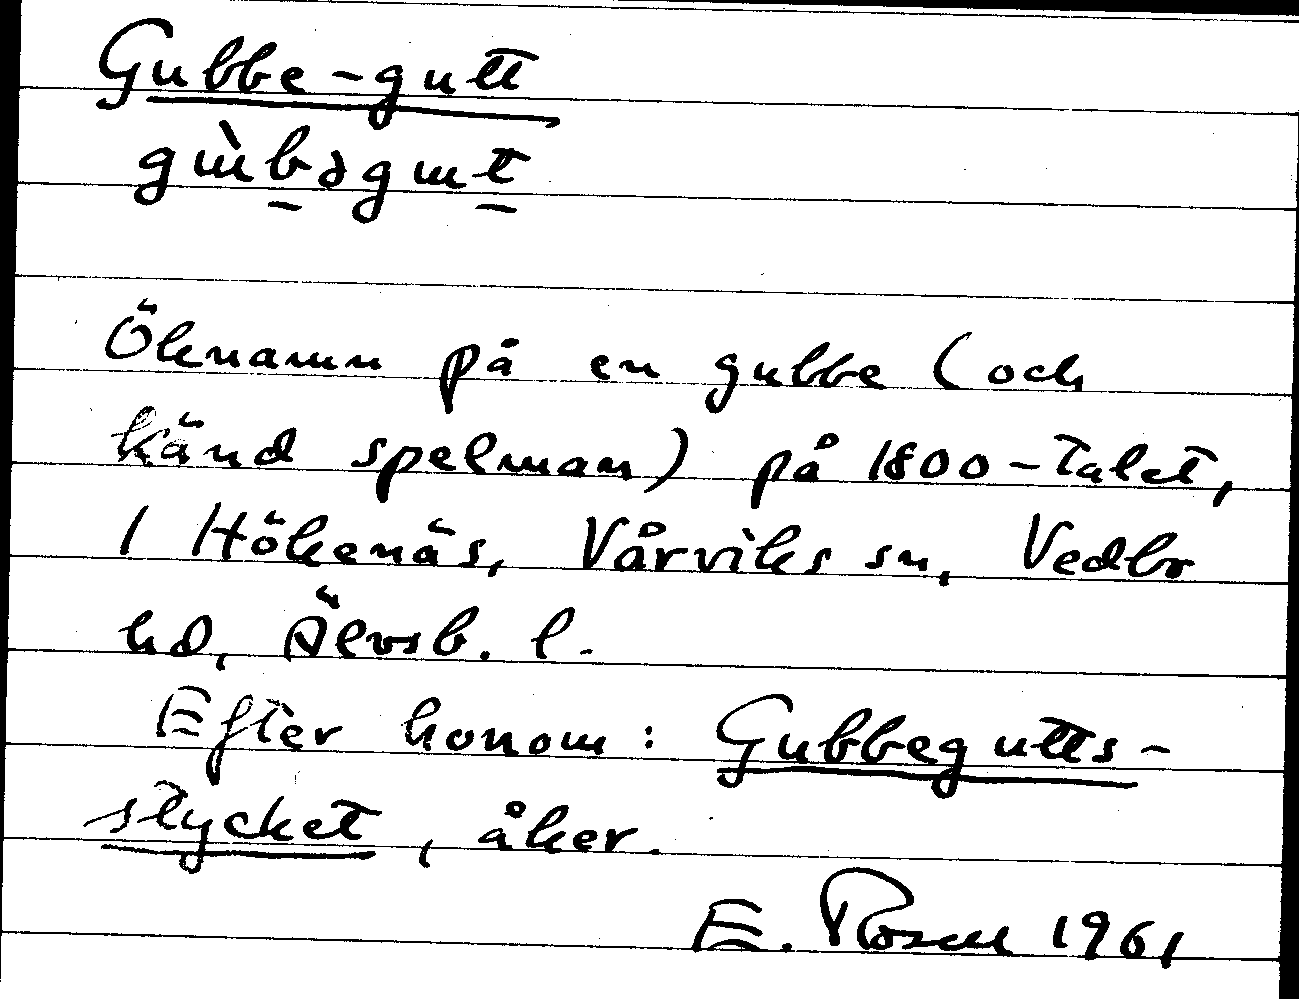 Gubbe-gutt
gɯ̀b̲əgɯt̲
Öknamn på en gubbe (och
känd spelman) på 1800-talet,
I Hökenäs, Vårviks sn, Vedbo
hd, Älvsb. l.
Efter honom: Gubbegutts-
stycket, åker.
E. Rosell 1961